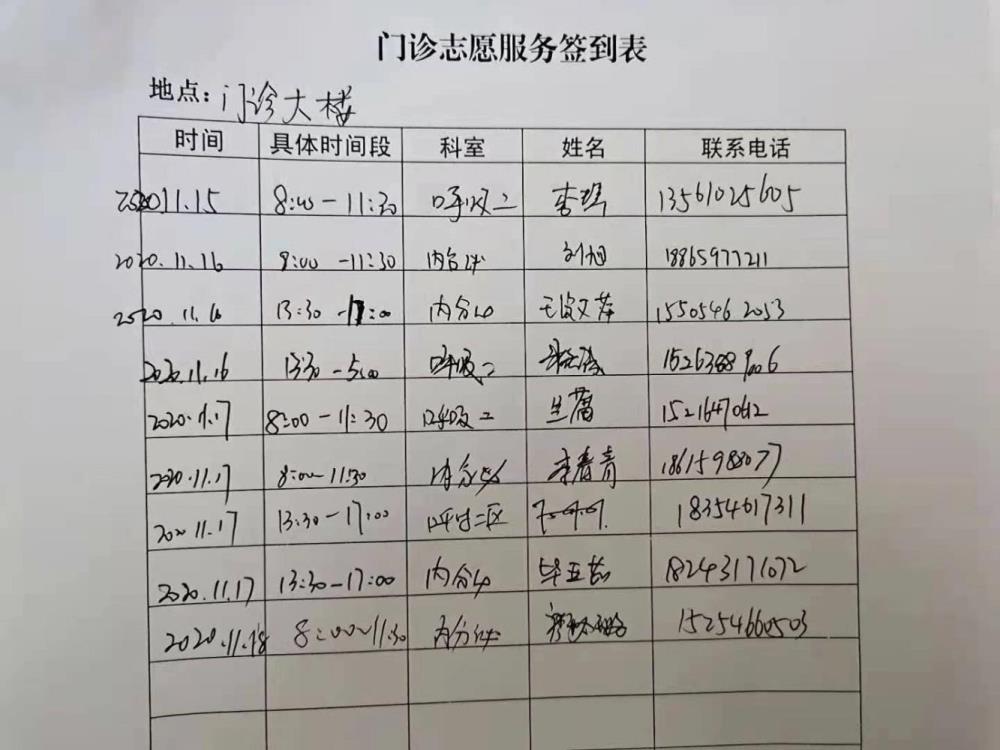 门诊志愿服务签到表
地点：门诊大楼
时间 具体时间段 科室 姓名 联系电话
2020.11.15 8:00-11:30 呼吸二 13561025605
2020.11.16 8:00-11:30 内分泌 刘旭 18865977211
2020.11.16 13:30-17:00 内分泌 15505462053
2020.11.16 13:30-5:00 呼吸二
2020.11.17 8:00-11:30 呼吸二
2020.11.17 8:00-11:30 内分泌 李春青 18615988077
2020.11.17 13:30-17:00 18354617311
2020.11.17 13:30-17:00 内分泌 18243171072
2020.11.18 8:00~11:30 内分泌 15254660503